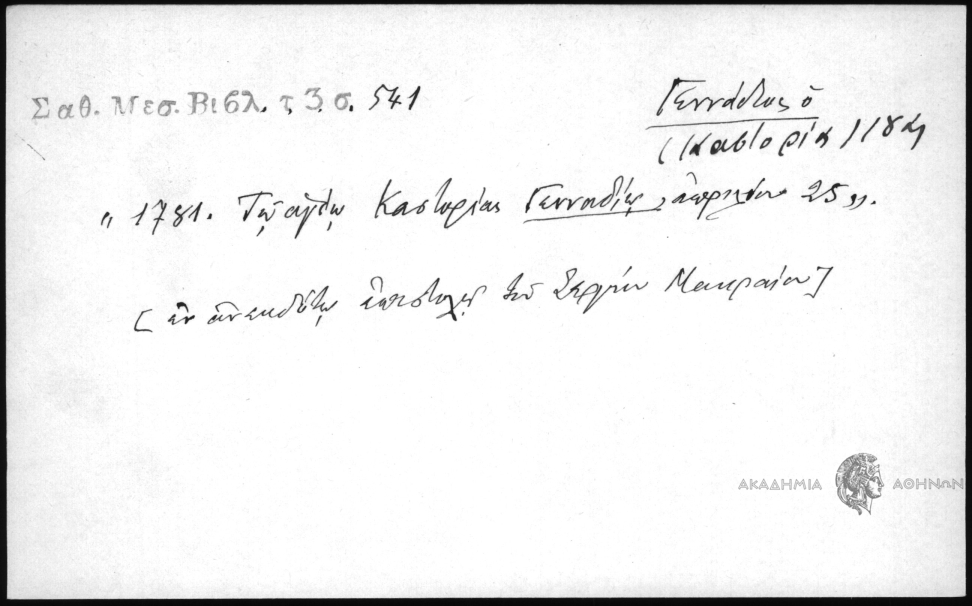 Σαθ. Μεσ. Βιβλ. τ. 3, σ. 541
Γεννάδιος ὁ
(Καστορία) 1781
„ 1781. Τῷ ἁγίῳ Καστορίας Γενναδίῳ, ἀπριλίου 25 „.
[ἐν ἀνεκδότῳ ἐπιστολῇ τοῦ Σεργίου Μακραίου]
ΑΚΑΔΗΜΙΑ ΑΘΗΝΩΝ